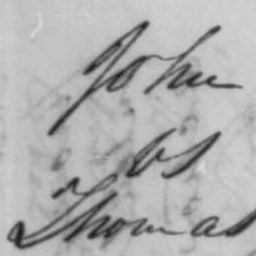 John
vs
Thomas